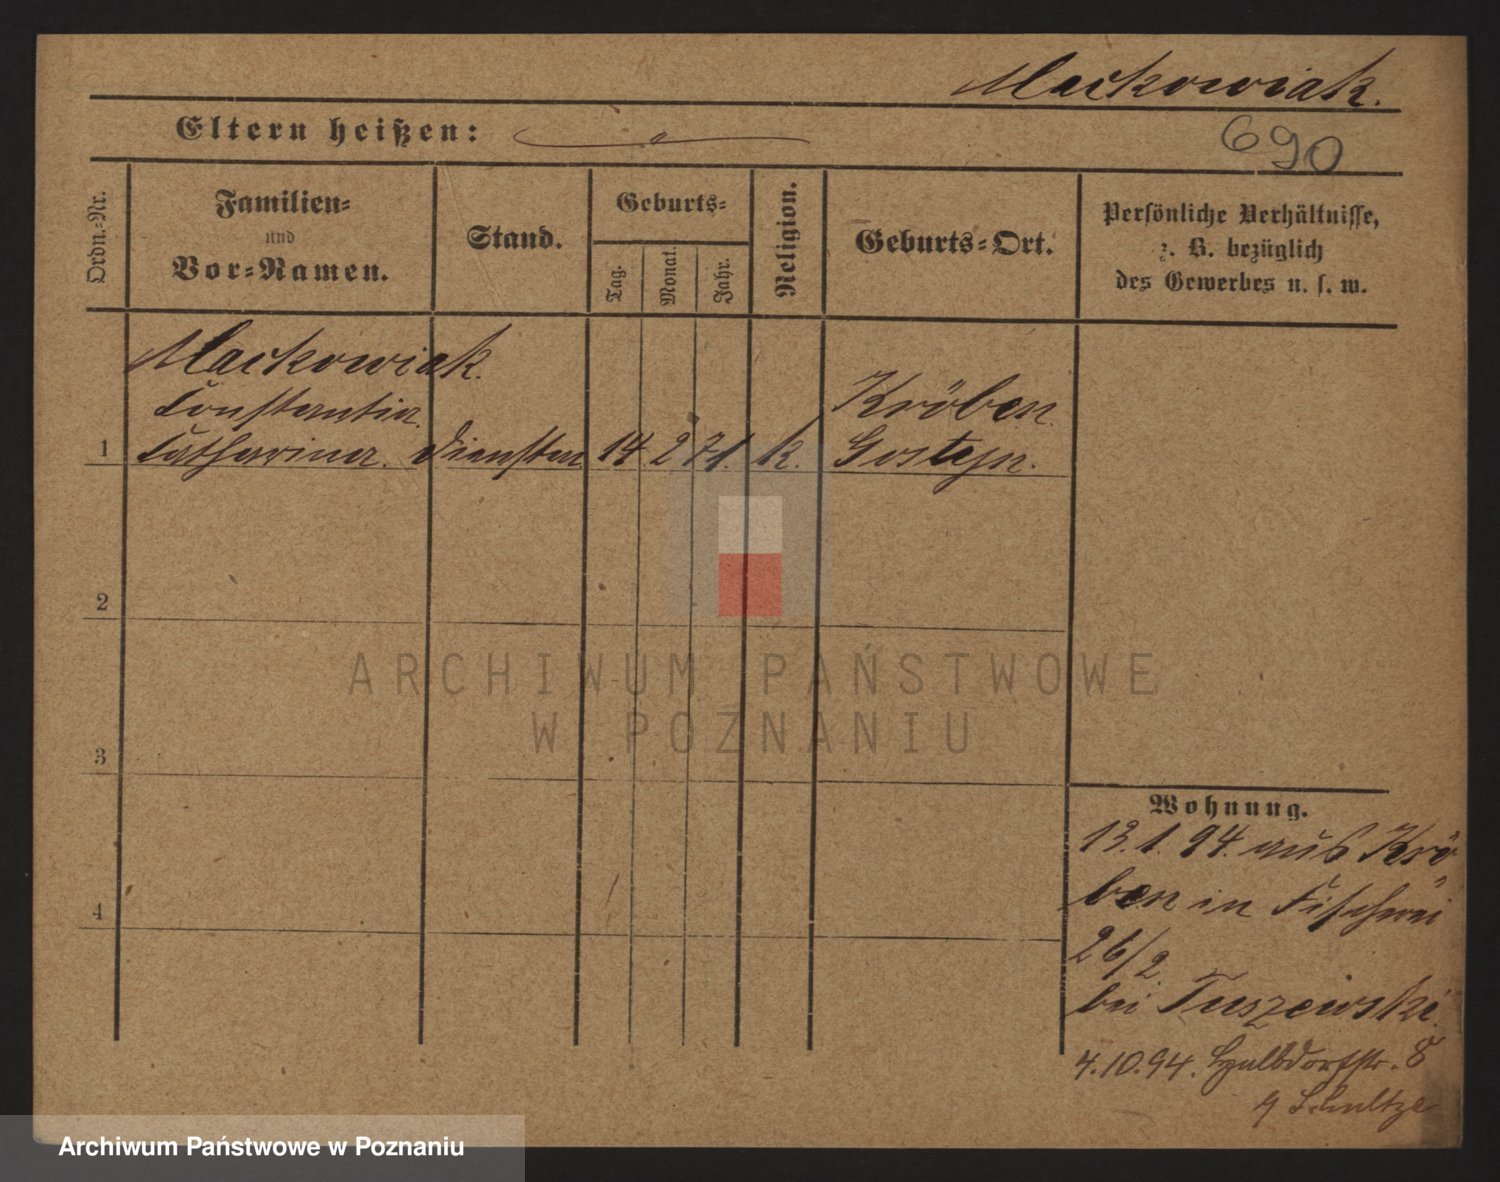 Mackowiak.
Eltern heißen:
690
Ordn.-Nr.
Familien-
und
Vor-Namen.
Stand.
Geburts-
Tag.
Monat.
Jahr.
Religion.
Geburts-Ort.
Persönliche Verhältnisse,
z. B. bezüglich
des Gewerbes u. s. w.
Mackowiak.
Constantia
Catharina.
1
14 2 71. k.
Kröben
Gostyn.
2
3
4
Wohnung.
13.1.94. aus Krö
ben in Fischerei
26/2
bei Tuszewski
4.10.94. Halbdorfstr. 8
Schultze
ARCHIWUM PAŃSTWOWE
W POZNANIU
Archiwum Państwowe w Poznaniu